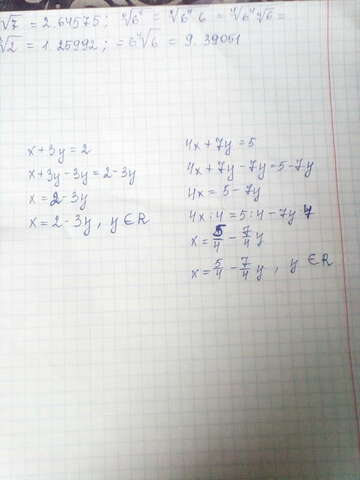 √7 = 2.64575; ∜6⁵ = ∜6⁴·6 = ∜6⁴ ∜6 =
∛2 = 1.25992; = 6∜6 = 9.39051
x+3y=2
x+3y-3y=2-3y
x=2-3y
x=2-3y, y∈R
4x+7y=5
4x+7y-7y=5-7y
4x=5-7y
4x:4=5:4-7y 4
x=5/4-7/4y
x=5/4-7/4y, y∈R